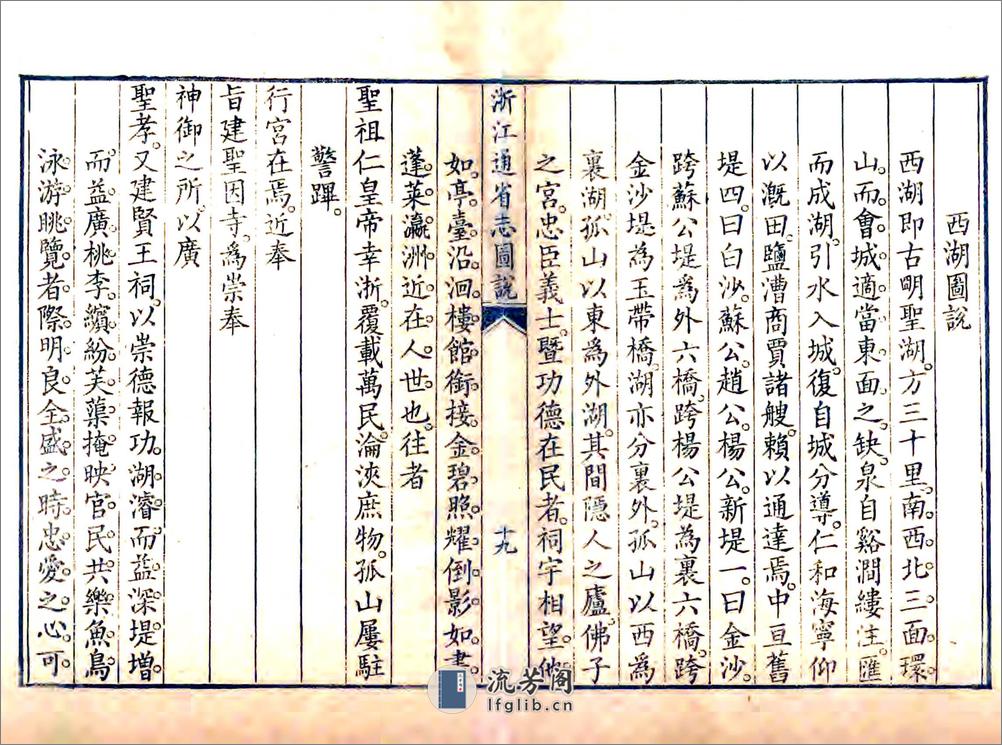 西湖圖說
西湖即古明聖湖。方三十里。南。西。北。三面。環。
山。而會城。適當東面之缺。泉自谿澗縷注。匯
而成湖。引水入城。復自城分導。仁和海寧仰
以溉田。鹽漕商賈諸艘。賴以通達焉。中亘舊
堤四。曰白沙。蘇公。趙公。楊公。新堤一。曰金沙。
跨蘇公堤為外六橋。跨楊公堤為裏六橋。跨
金沙堤為玉帶橋。湖亦分裏外。孤山以西為
裏湖。孤山以東為外湖。其間隱人之廬。佛子
之宮。忠臣義士。暨功德在民者。祠宇相望。他
浙江通省志圖說
十九
如亭臺沿洄。樓館銜接。金碧照耀。倒影如畫。
蓬萊瀛洲。近在人世也。往者
聖祖仁皇帝幸浙。覆載萬民。淪浹庶物。孤山屢駐
警蹕。
行宮在焉。近奉
旨建聖因寺。為崇奉
神御之所。以廣
聖孝。又建賢王祠。以崇德報功。湖濬而益深。堤增
而益廣。桃李繽紛。芙蕖掩映。官民共樂。魚鳥
泳游。眺覽者。際明良全盛之時。忠愛之心。可
流芳阁
lfglib.cn